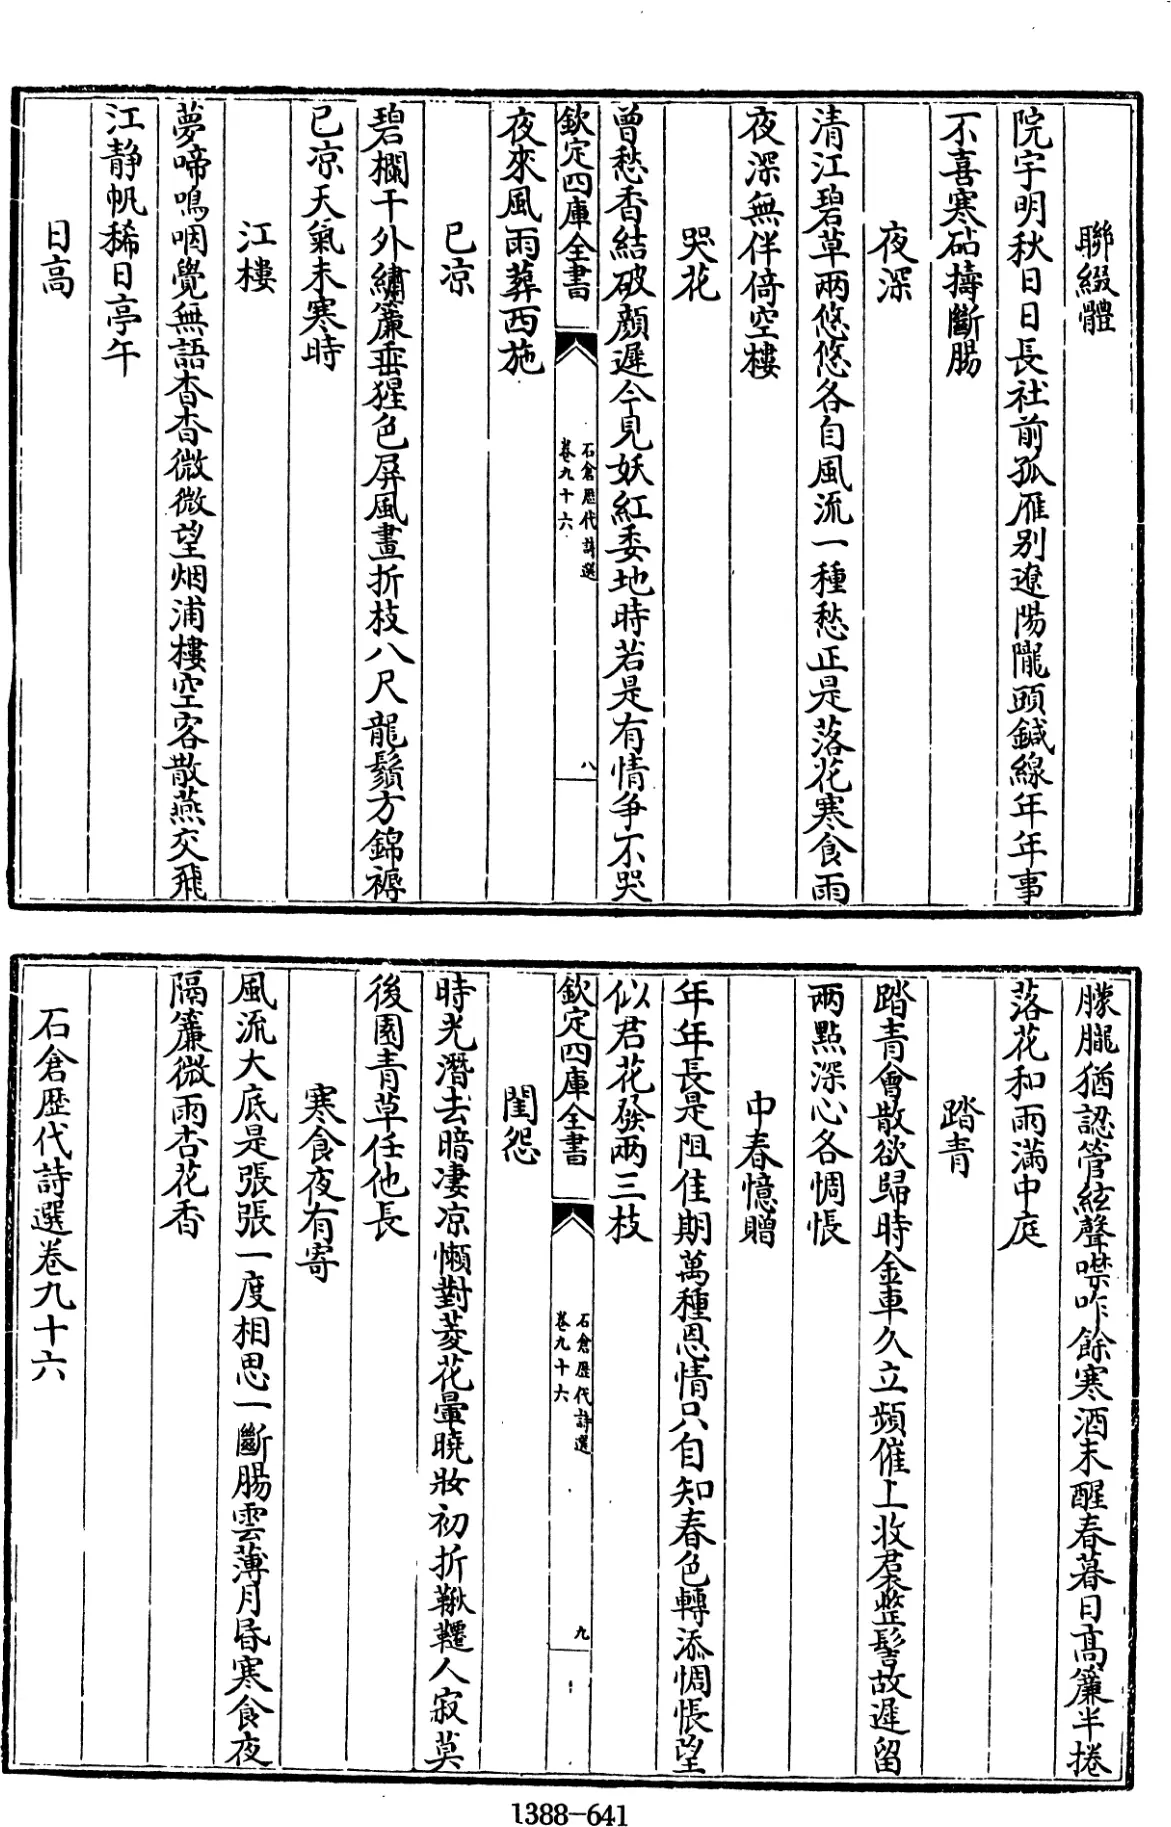 聯綴體
院宇明秋日日長社前孤雁别遼陽隴頭鍼線年年事
不喜寒砧擣斷腸
夜深
清江碧草兩悠悠各自風流一種愁正是落花寒食雨
夜深無伴倚空樓
哭花
曾愁香結破顔遲今見妖紅委地時若是有情争不哭
欽定四庫全書
石倉歷代詩選
卷九十六
八
夜來風雨葬西施
已凉
碧欄干外繡簾垂猩色屏風畫折枝八尺龍鬚方錦褥
已凉天氣未寒時
江樓
夢啼嗚咽覺無語杳杳微微望烟浦樓空客散燕交飛
江静帆稀日亭午
日高
朦朧猶認管絃聲噤吟餘寒酒未醒春暮日高簾半捲
落花和雨滿中庭
踏青
踏青會散欲歸時金車久立頻催上收裙整髻故遲留
兩點深心各惆悵
中春憶贈
年年長是阻佳期萬種恩情只自知春色轉添惆悵望
似君花發兩三枝
欽定四庫全書
石倉歷代詩選
卷九十六
九
閨怨
時光潛去暗凄凉懶對菱花暈曉妝初折鞦韆人寂莫
後園青草任他長
寒食夜有寄
風流大底是張張一度相思一斷腸雲薄月昏寒食夜
隔簾微雨杏花香
石倉歷代詩選卷九十六
1388-641